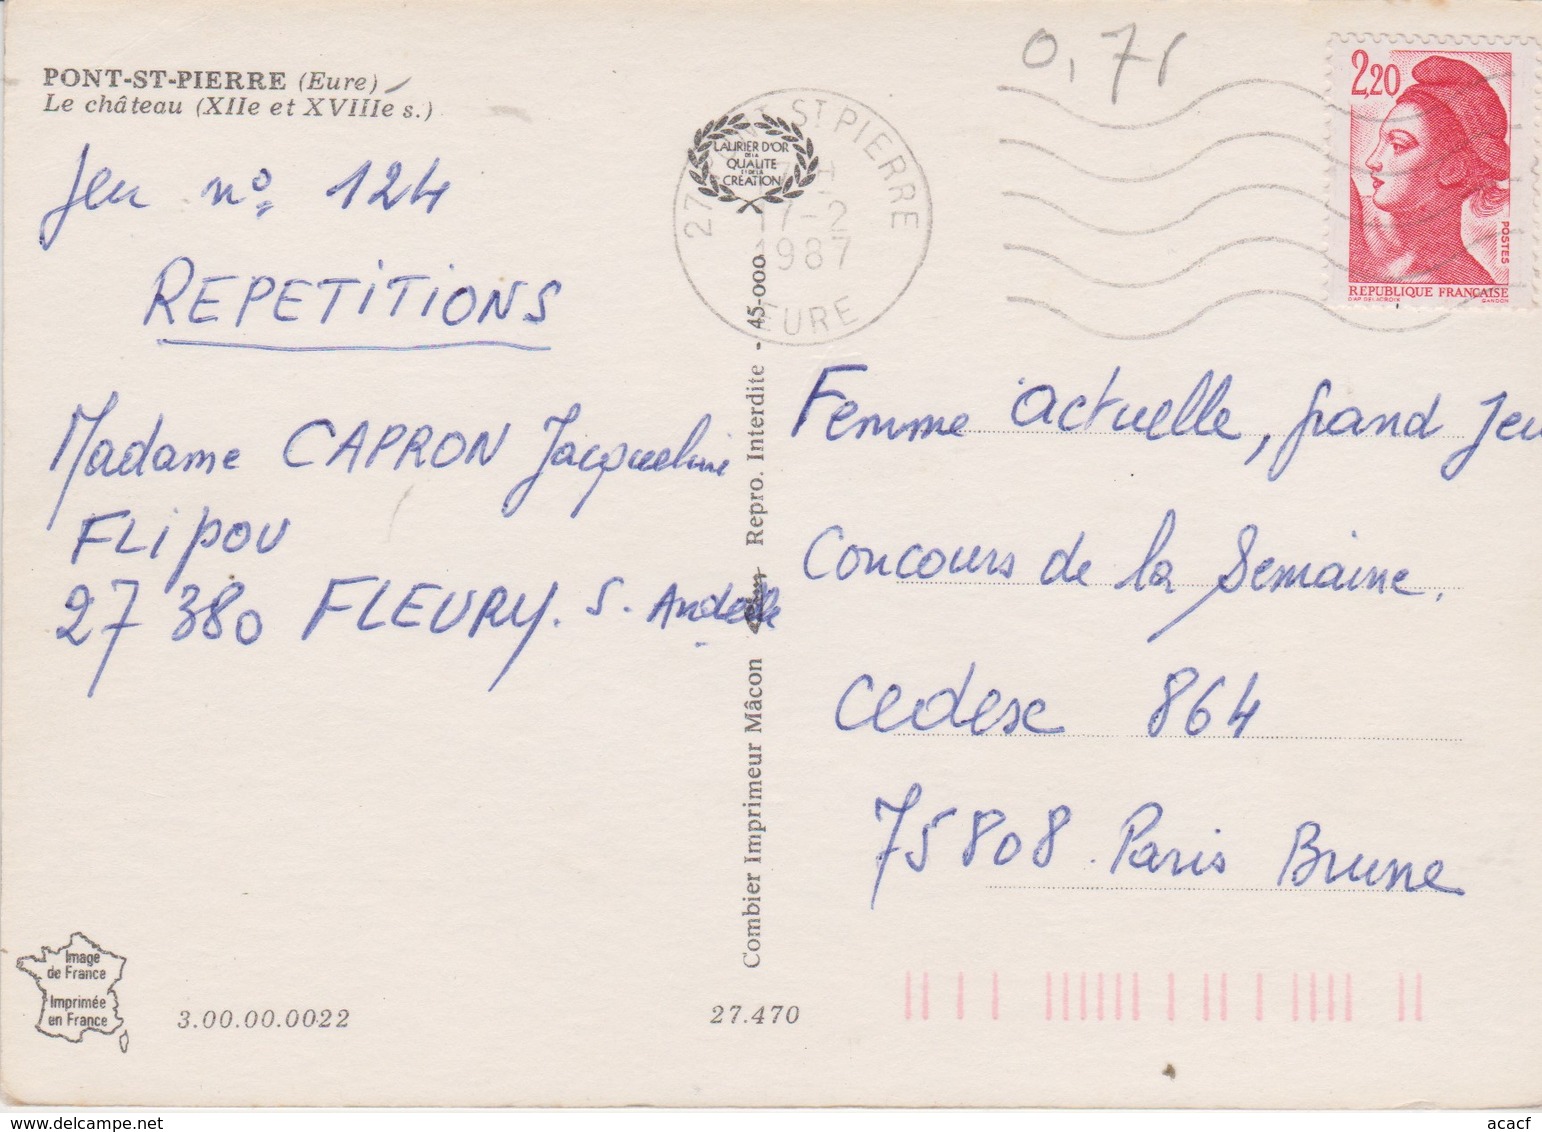 PONT-ST-PIERRE (Eure)
Le château (XIIe et XVIIIe s.)
Jeu nº 124
REPETITIONS
Madame CAPRON Jacqueline
FLIPOU
27 380 FLEURY. S. Andelle
0,71
27 PONT ST PIERRE
17-2
1987
EURE
LAURIER D'OR
DE LA
QUALITE
ET DE LA
CRÉATION
2,20
POSTES
REPUBLIQUE FRANÇAISE
D'AP. DELACROIX GANDON
Combier Imprimeur Mâcon Repro. Interdite - 45-000
Femme actuelle, grand Jeu
Concours de la Semaine.
Cedex 864
75808 Paris Brune
Image
de France
Imprimée
en France
3.00.00.0022
27.470
acacf